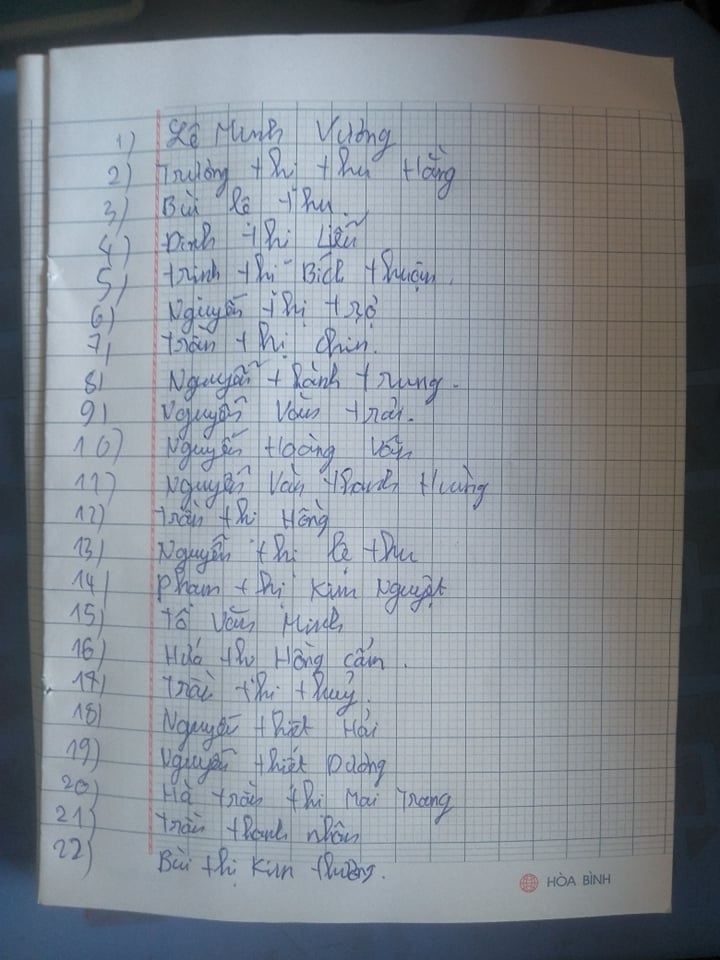 1) Lê Minh Vương
2) Trương thị thu Hằng
3) Bùi lê thu.
4) Đinh thị Liễu
5) trịnh thị Bích thuận.
6) Nguyễn thị trợ
7) trần thị chín.
8) Nguyễn thành trung.
9) Nguyễn Văn trải.
10) Nguyễn Hoàng Vân
11) Nguyễn Văn thanh Hương
12) trần thị Hồng
13) Nguyễn thị lệ thu
14) phạm thị Kim Nguyệt
15) Tô Văn Minh
16) Hứa thị Hồng cẩm.
17) trần thị thuỷ.
18) Nguyễn thiết Hải
19) Nguyễn thiết Dương
20) Hà trần thị Mai Trang
21) trần thanh nhân
22) Bùi thị Kim thường.
HÒA BÌNH